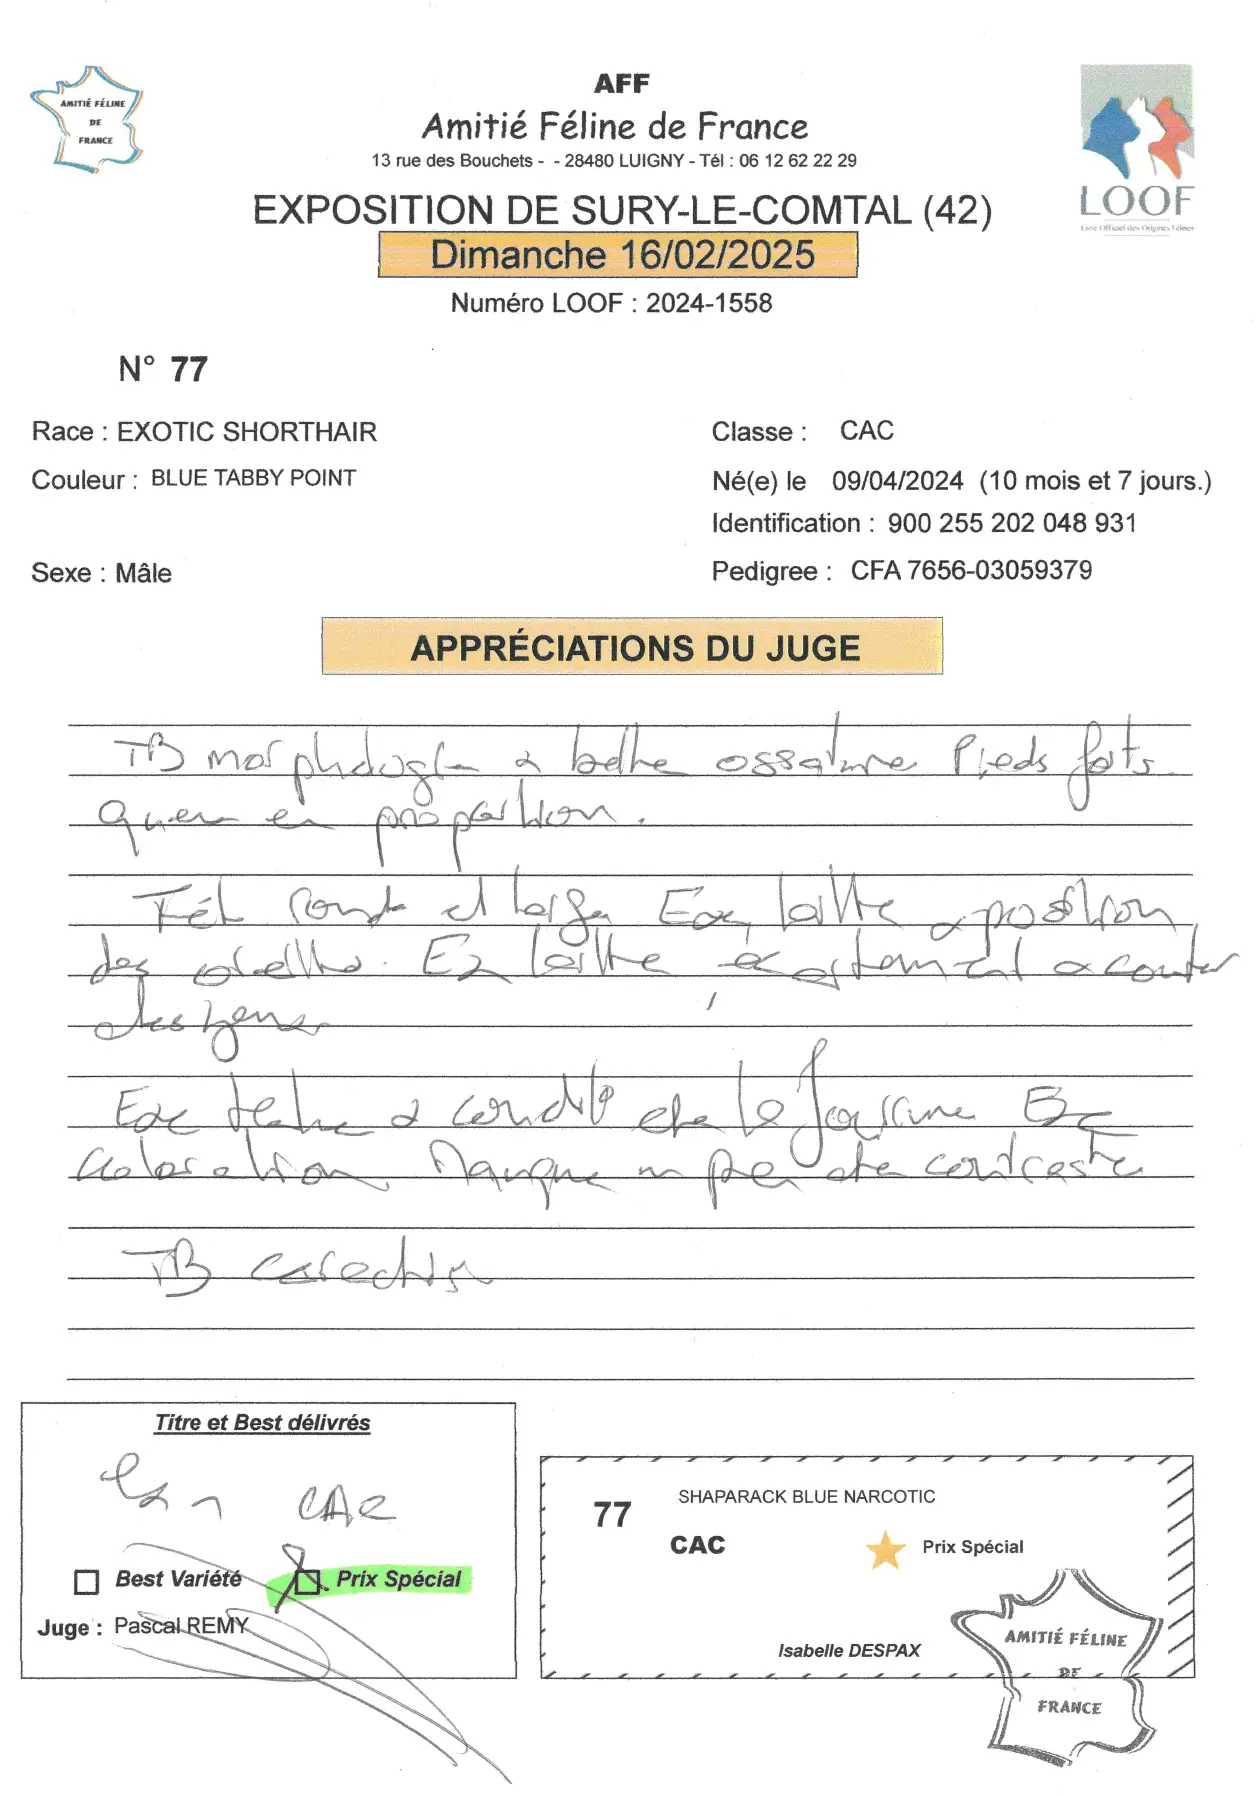 AMITIÉ FÉLINE
DE
FRANCE
AFF
Amitié Féline de France
13 rue des Bouchets - - 28480 LUIGNY - Tél : 06 12 62 22 29
EXPOSITION DE SURY-LE-COMTAL (42)
Dimanche 16/02/2025
Numéro LOOF : 2024-1558
LOOF
Livre Officiel des Origines Félines
N° 77
Race : EXOTIC SHORTHAIR
Classe : CAC
Couleur : BLUE TABBY POINT
Né(e) le 09/04/2024 (10 mois et 7 jours.)
Identification : 900 255 202 048 931
Sexe : Mâle
Pedigree : CFA 7656-03059379
APPRÉCIATIONS DU JUGE
TB morphologie belle ossature Pieds forts
queue en proportion.
Tête ronde et large Exc taille position
des oreilles. Ex taille écartement
des yeux
Exc texture condit de la fourrure Exc
coloration Manque un peu de contraste
TB caractère
Titre et Best délivrés
Ex 1 CAC
Best Variété
Prix Spécial
Juge : Pascal REMY
77
SHAPARACK BLUE NARCOTIC
CAC
Prix Spécial
Isabelle DESPAX
AMITIÉ FÉLINE
DE
FRANCE